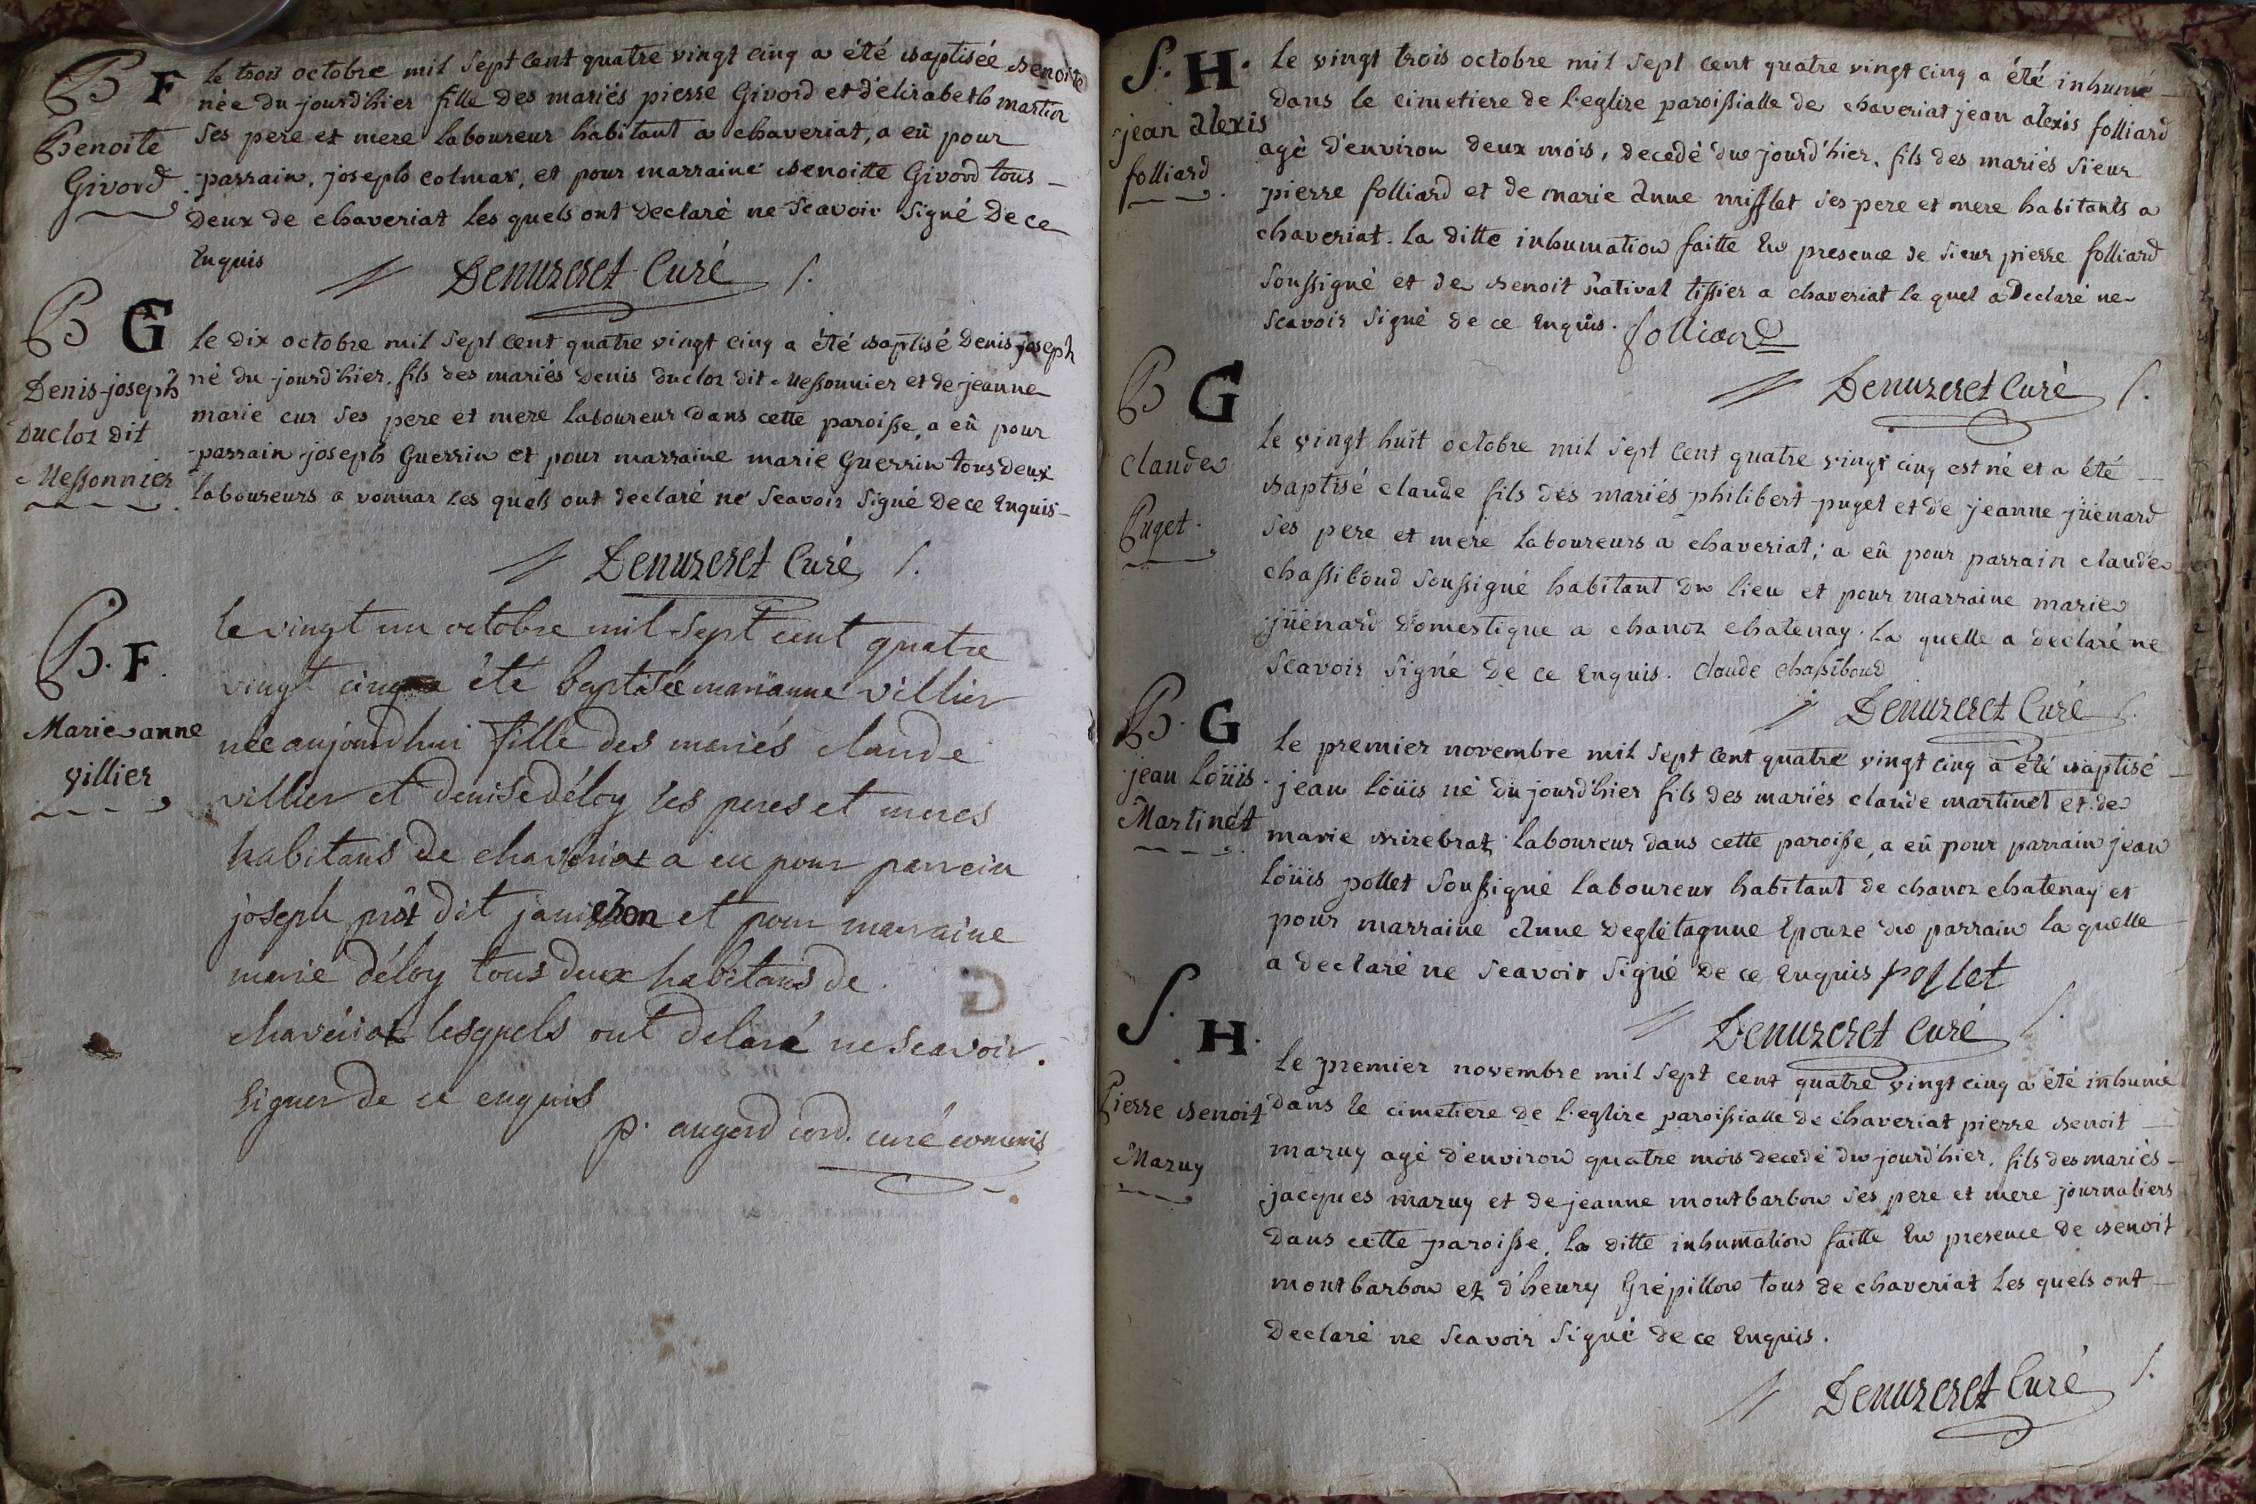 B F
Benoite
Givord
le trois octobre mil sept cent quatre vingt cinq a été baptisée benoite
née du jourd'hier fille des mariés pierre Givord et d'élizabeth martin
ses pere et mere laboureur habitant a chaveriat, a eû pour
parrain, joseph colmar, et pour marraine benoitte Givord tous
deux de chaveriat les quels ont declaré ne sçavoir signé de ce
Enquis
Denuzeret Curé
B G
Denis-joseph
Ducloz dit
Messonnier
le dix octobre mil sept cent quatre vingt cinq a été baptisé Denis joseph
né du jourd'hier, fils des mariés denis ducloz dit Messonnier et de jeanne
marie cur ses pere et mere laboureur dans cette paroisse, a eû pour
parrain joseph Guerrin et pour marraine marie Guerrin tous deux
laboureurs a vonnaz les quels ont declaré ne sçavoir signé de ce Enquis
Denuzeret Curé
B. F.
Marie anne
villier
le vingt un octobre mil sept cent quatre
vingt cinq a été baptisée marianne villier
née aujourdhui fille des mariés claude
villier et denise déloy ses peres et meres
habitans de chaveriat a eu pour parrein
joseph dit et pour marraine
marie déloy tous deux habitans de
chavériat lesquels ont delaré ne scavoir
signer de ce enquis
p. cord. curé commis
S. H.
jean alexis
folliard
le vingt trois octobre mil sept cent quatre vingt cinq a été inhumé
dans le cimetiere de l'eglize paroissialle de chaveriat jean alexis folliard
agé d'environ deux mois, decedé du jourd'hier, fils des mariés sieur
pierre folliard et de marie anne mifflet ses pere et mere habitants a
chaveriat. la ditte inhumation faitte En presence de sieur pierre folliard
soussigné et de benoit nativat tissier a chaveriat le quel a declaré ne
scavoir signé de ce Enquis. folliard
Denuzeret Curé
B G
claude
Puget.
le vingt huit octobre mil sept cent quatre vingt cinq est né et a été
baptisé claude fils des mariés philibert puget et de jeanne jüenard
ses pere et mere laboureurs a chaveriat; a eû pour parrain claude
chassiboud soussigné habitant du lieu et pour marraine marie
jüenard domestique a chanoz chatenay. la quelle a declaré ne
scavoir signé de ce Enquis. claude chassiboud
Denuzeret Curé
B. G
jean loüis
Martinet
le premier novembre mil sept cent quatre vingt cinq a été baptisé
jean loüis né du jourd'hier fils des mariés claude martinet et de
marie laboureur dans cette paroisse, a eû pour parrain jean
loüis pollet soussigné laboureur habitant de chanoz chatenay et
pour marraine anne Epouze du parrain la quelle
a declaré ne scavoir signé de ce Enquis pollet
Denuzeret Curé
S. H.
Pierre benoit
Mazuy
le premier novembre mil sept cent quatre vingt cinq a été inhumé
dans le cimetiere de l'eglize paroissialle de chaveriat pierre benoit
mazuy agé d'environ quatre mois decedé du jourd'hier. fils des mariés
jacques mazuy et de jeanne montbarbon ses pere et mere journaliers
dans cette paroisse, la ditte inhumation faitte En presence de benoit
montbarbon et d'henry Grépillon tous de chaveriat les quels ont
declaré ne scavoir signé de ce Enquis.
Denuzeret Curé